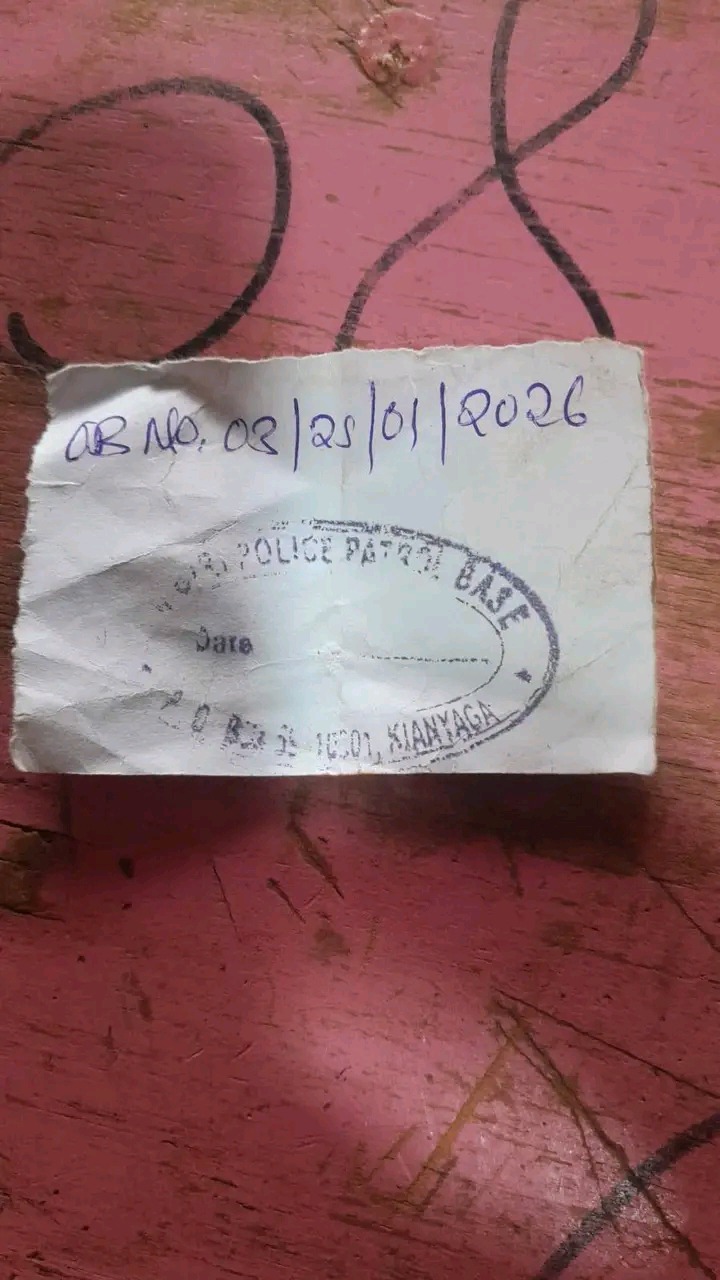 OB NO. 03/25/01/2026
POLICE PATROL BASE
Date
10301, KIANYAGA